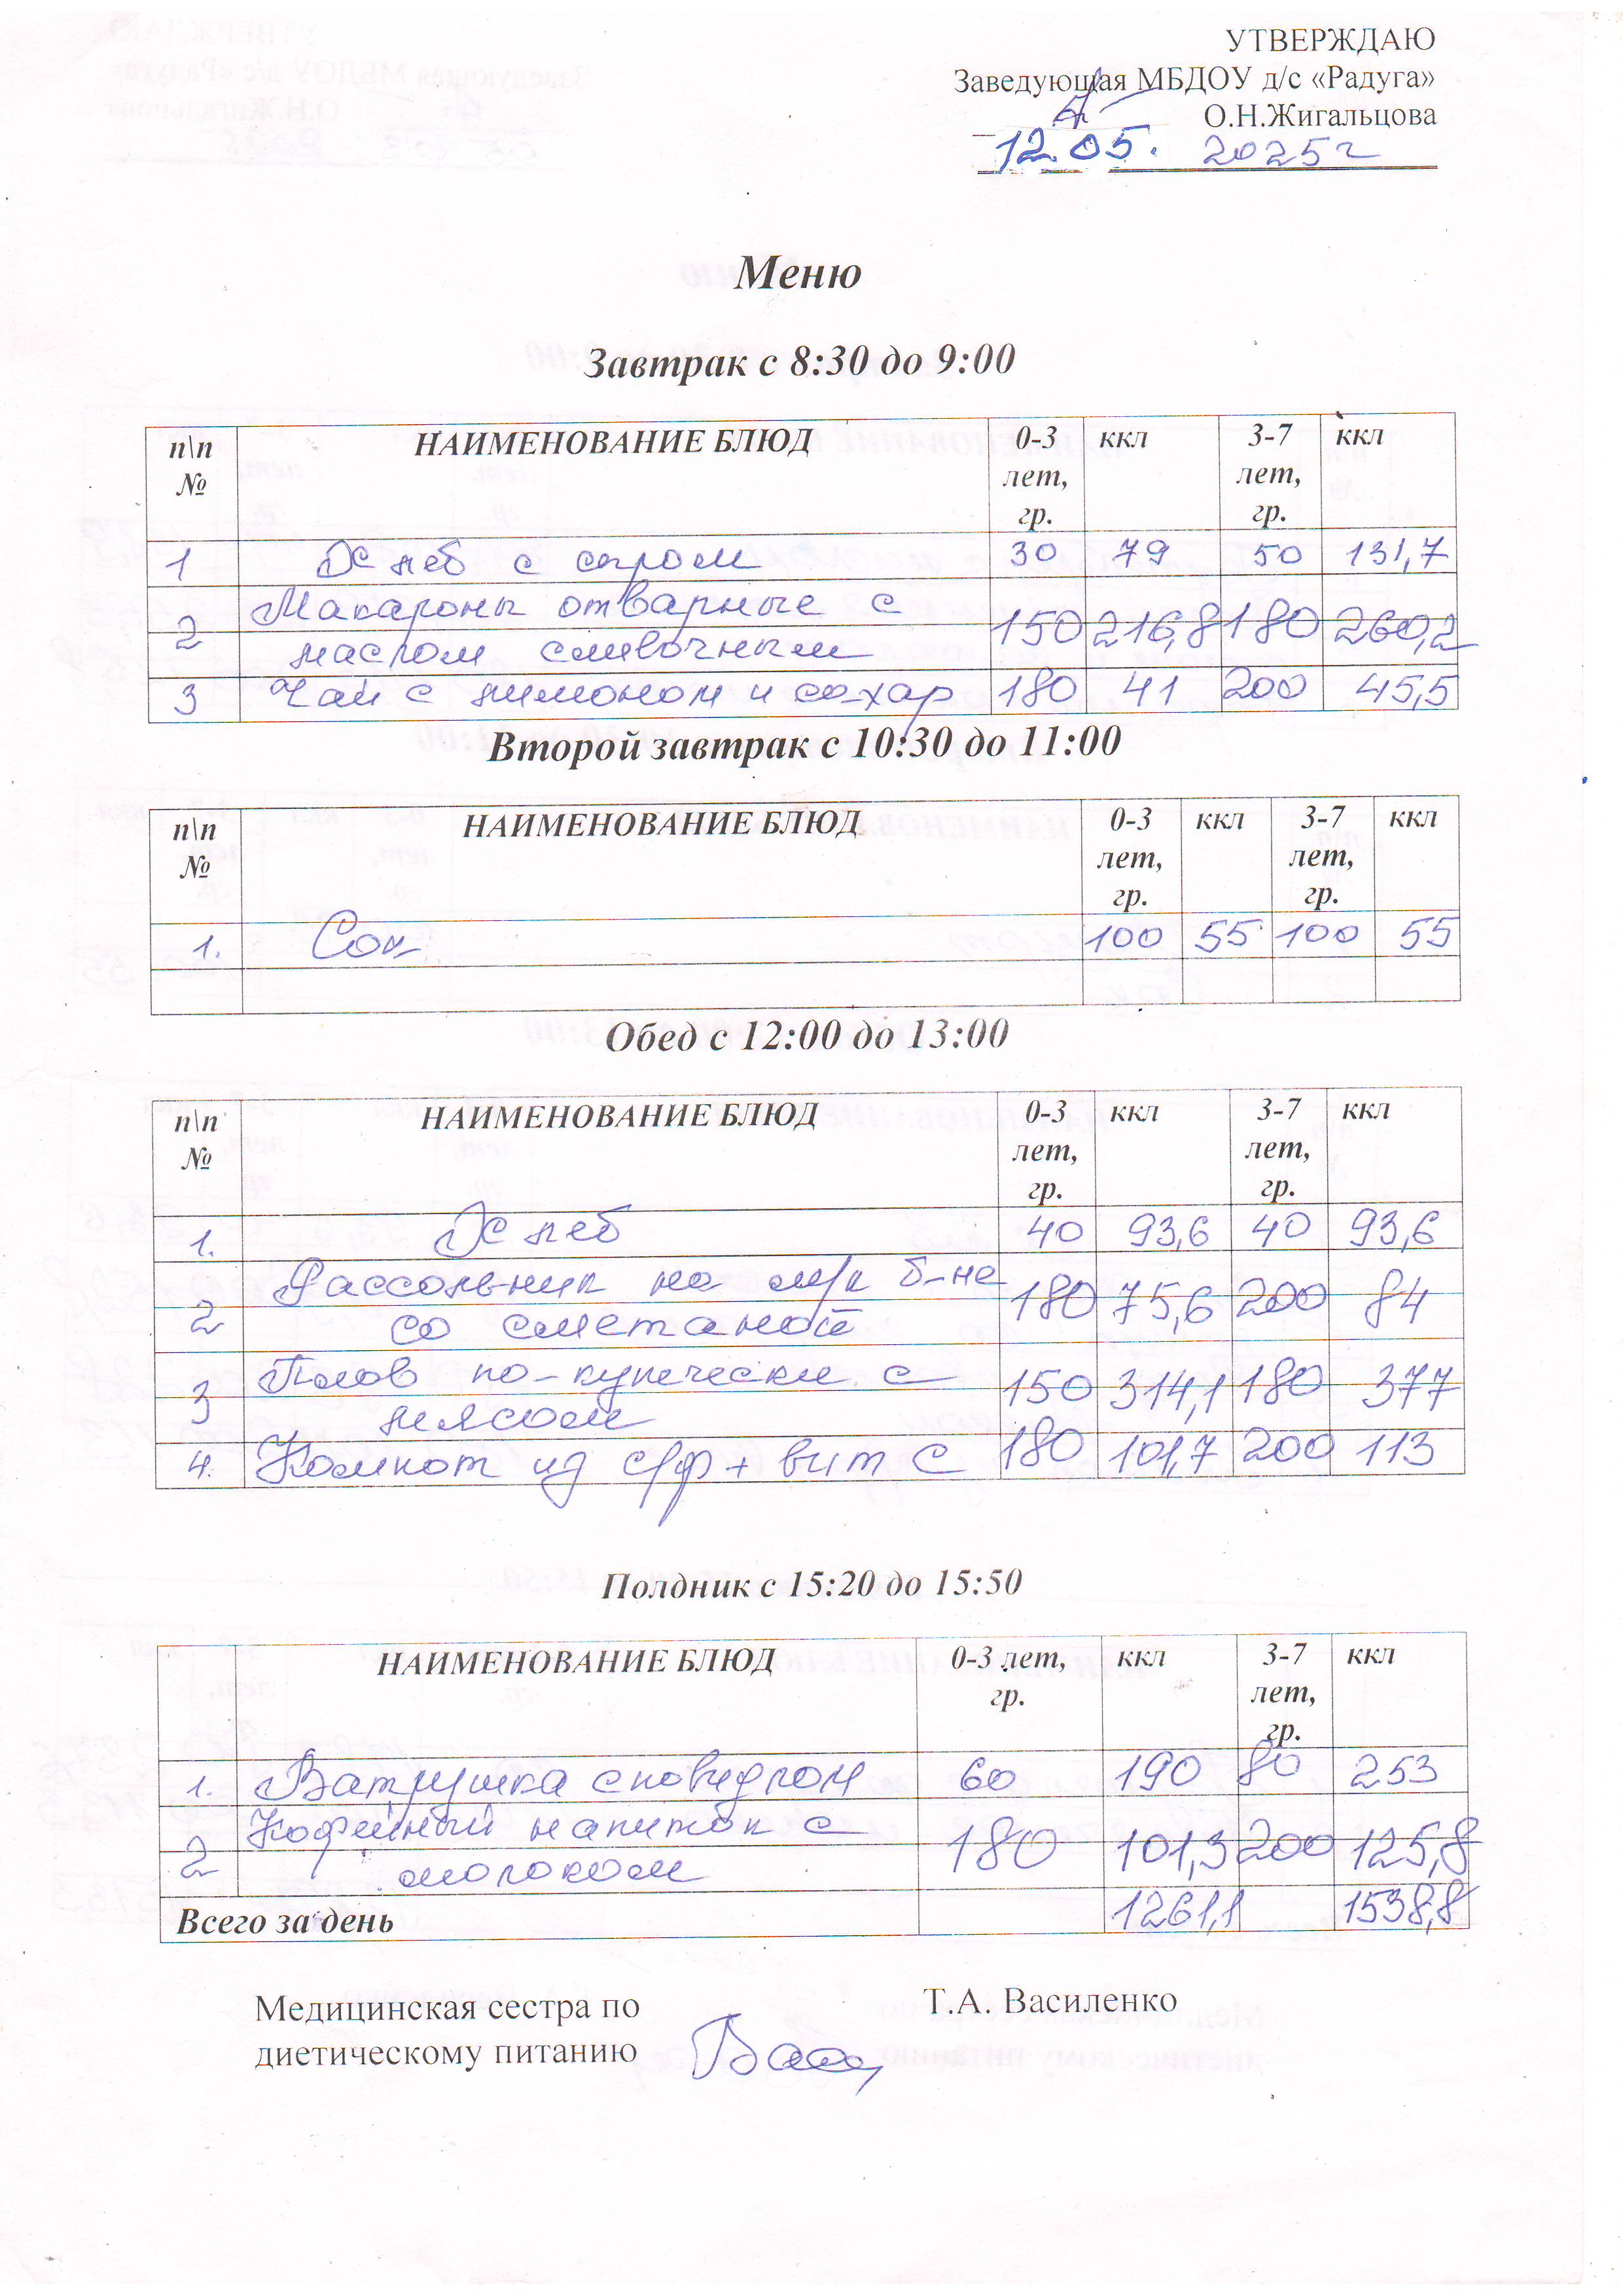 УТВЕРЖДАЮ
Заведующая МБДОУ д/с «Радуга»
О.Н.Жигальцова
12.05. 2025г
Меню
Завтрак с 8:30 до 9:00
п\п № НАИМЕНОВАНИЕ БЛЮД 0-3 лет, гр. ккл 3-7 лет, гр. ккл
1 Хлеб с сыром 30 79 50 131,7
2 Макароны отварные с
маслом сливочным 150 216,8 180 260,2
3 Чай с лимоном и сахар 180 41 200 45,5
Второй завтрак с 10:30 до 11:00
п\п № НАИМЕНОВАНИЕ БЛЮД 0-3 лет, гр. ккл 3-7 лет, гр. ккл
1. Сок 100 55 100 55
Обед с 12:00 до 13:00
п\п № НАИМЕНОВАНИЕ БЛЮД 0-3 лет, гр. ккл 3-7 лет, гр. ккл
1. Хлеб 40 93,6 40 93,6
2 Рассольник на м/к б-не
со сметаной 180 75,6 200 84
3 Плов по-купечески с
мясом 150 314,1 180 377
4. Компот из с/ф + вит С 180 101,7 200 113
Полдник с 15:20 до 15:50
НАИМЕНОВАНИЕ БЛЮД 0-3 лет, гр. ккл 3-7 лет, гр. ккл
1. Ватрушка с повидлом 60 190 80 253
2 Кофейный напиток с
молоком 180 101,3 200 125,8
Всего за день 1261,1 1538,8
Медицинская сестра по Т.А. Василенко
диетическому питанию